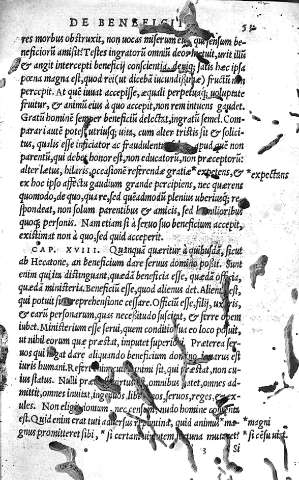 DE BENEFICII
res morbus obstruxit, non uocas miserum eum, qui sensum be-
neficiorū amisit? Testes ingratorū omniū deos metuit, urit illū
& angit intercepti beneficij conscientia, deniq; satis hæc ipsa
pœna magna est, quod rei (ut dicebā iucundissimæ) fructū non
percipit. At quē iuuat accepisse, æquali perpetuaq; uoluptate
fruitur, & animū eius à quo accepit, non rem intuens gaudet.
Gratū hominē semper beneficiū delectat, ingratū semel. Com-
parari autē potest utriusq; uita, cum alter tristis sit & solici-
tus, qualis esse inficiator ac fraudulentus apud quē non
parentū, qui debet honor est, non educatorū, non præceptorū:
alter lætus, hilaris, occasionē referendæ gratiæ *expetens, & *expectans
ex hoc ipso affectu gaudium grande percipiens, nec quærens
quomodo, de quo, quare, sed quēadmodū plenius uberiusq; re-
spondeat, non solum parentibus & amicis, sed humilioribus
quoq; personis. Nam etiam si à seruo suo beneficium accepit,
existimat non à quo, sed quid acceperit.
CAP. XVIII. Quanquā quæritur à quibusdā, sicut
ab Hecatone, an beneficium dare seruus domino possit. Sunt
enim qui ita distinguant, quædā beneficia esse, quædā officia,
quædā ministeria. Beneficiū esse, quod alienus det. Alienus est,
qui potuit sine reprehensione cessare. Officiū esse, filij, uxoris,
& earū personarum, quas necessitudo suscitat, & ferre opem
iubet. Ministerium esse serui, quem conditio sua eo loco posuit,
ut nihil eorum quæ præstat, imputet superiori. Præterea ser-
uos qui negat dare aliquando beneficium domino, ignarus est
iuris humani. Refert enim cuius animi sit, qui præstat, non cu-
ius status. Nulli præclusa uirtus est, omnibus patet, omnes ad-
mittit, omnes inuitat, ingenuos, libertinos, seruos, reges, & ex-
ules. Non eligit domum, nec censum, nudo homine contenta
est. Quid enim erat tuti aduersus repentina, quid animus *ma- *magni
gnum promitteret sibi, *si certam uirtutem fortuna mutaret? *si cēsu uirt.
3 Si